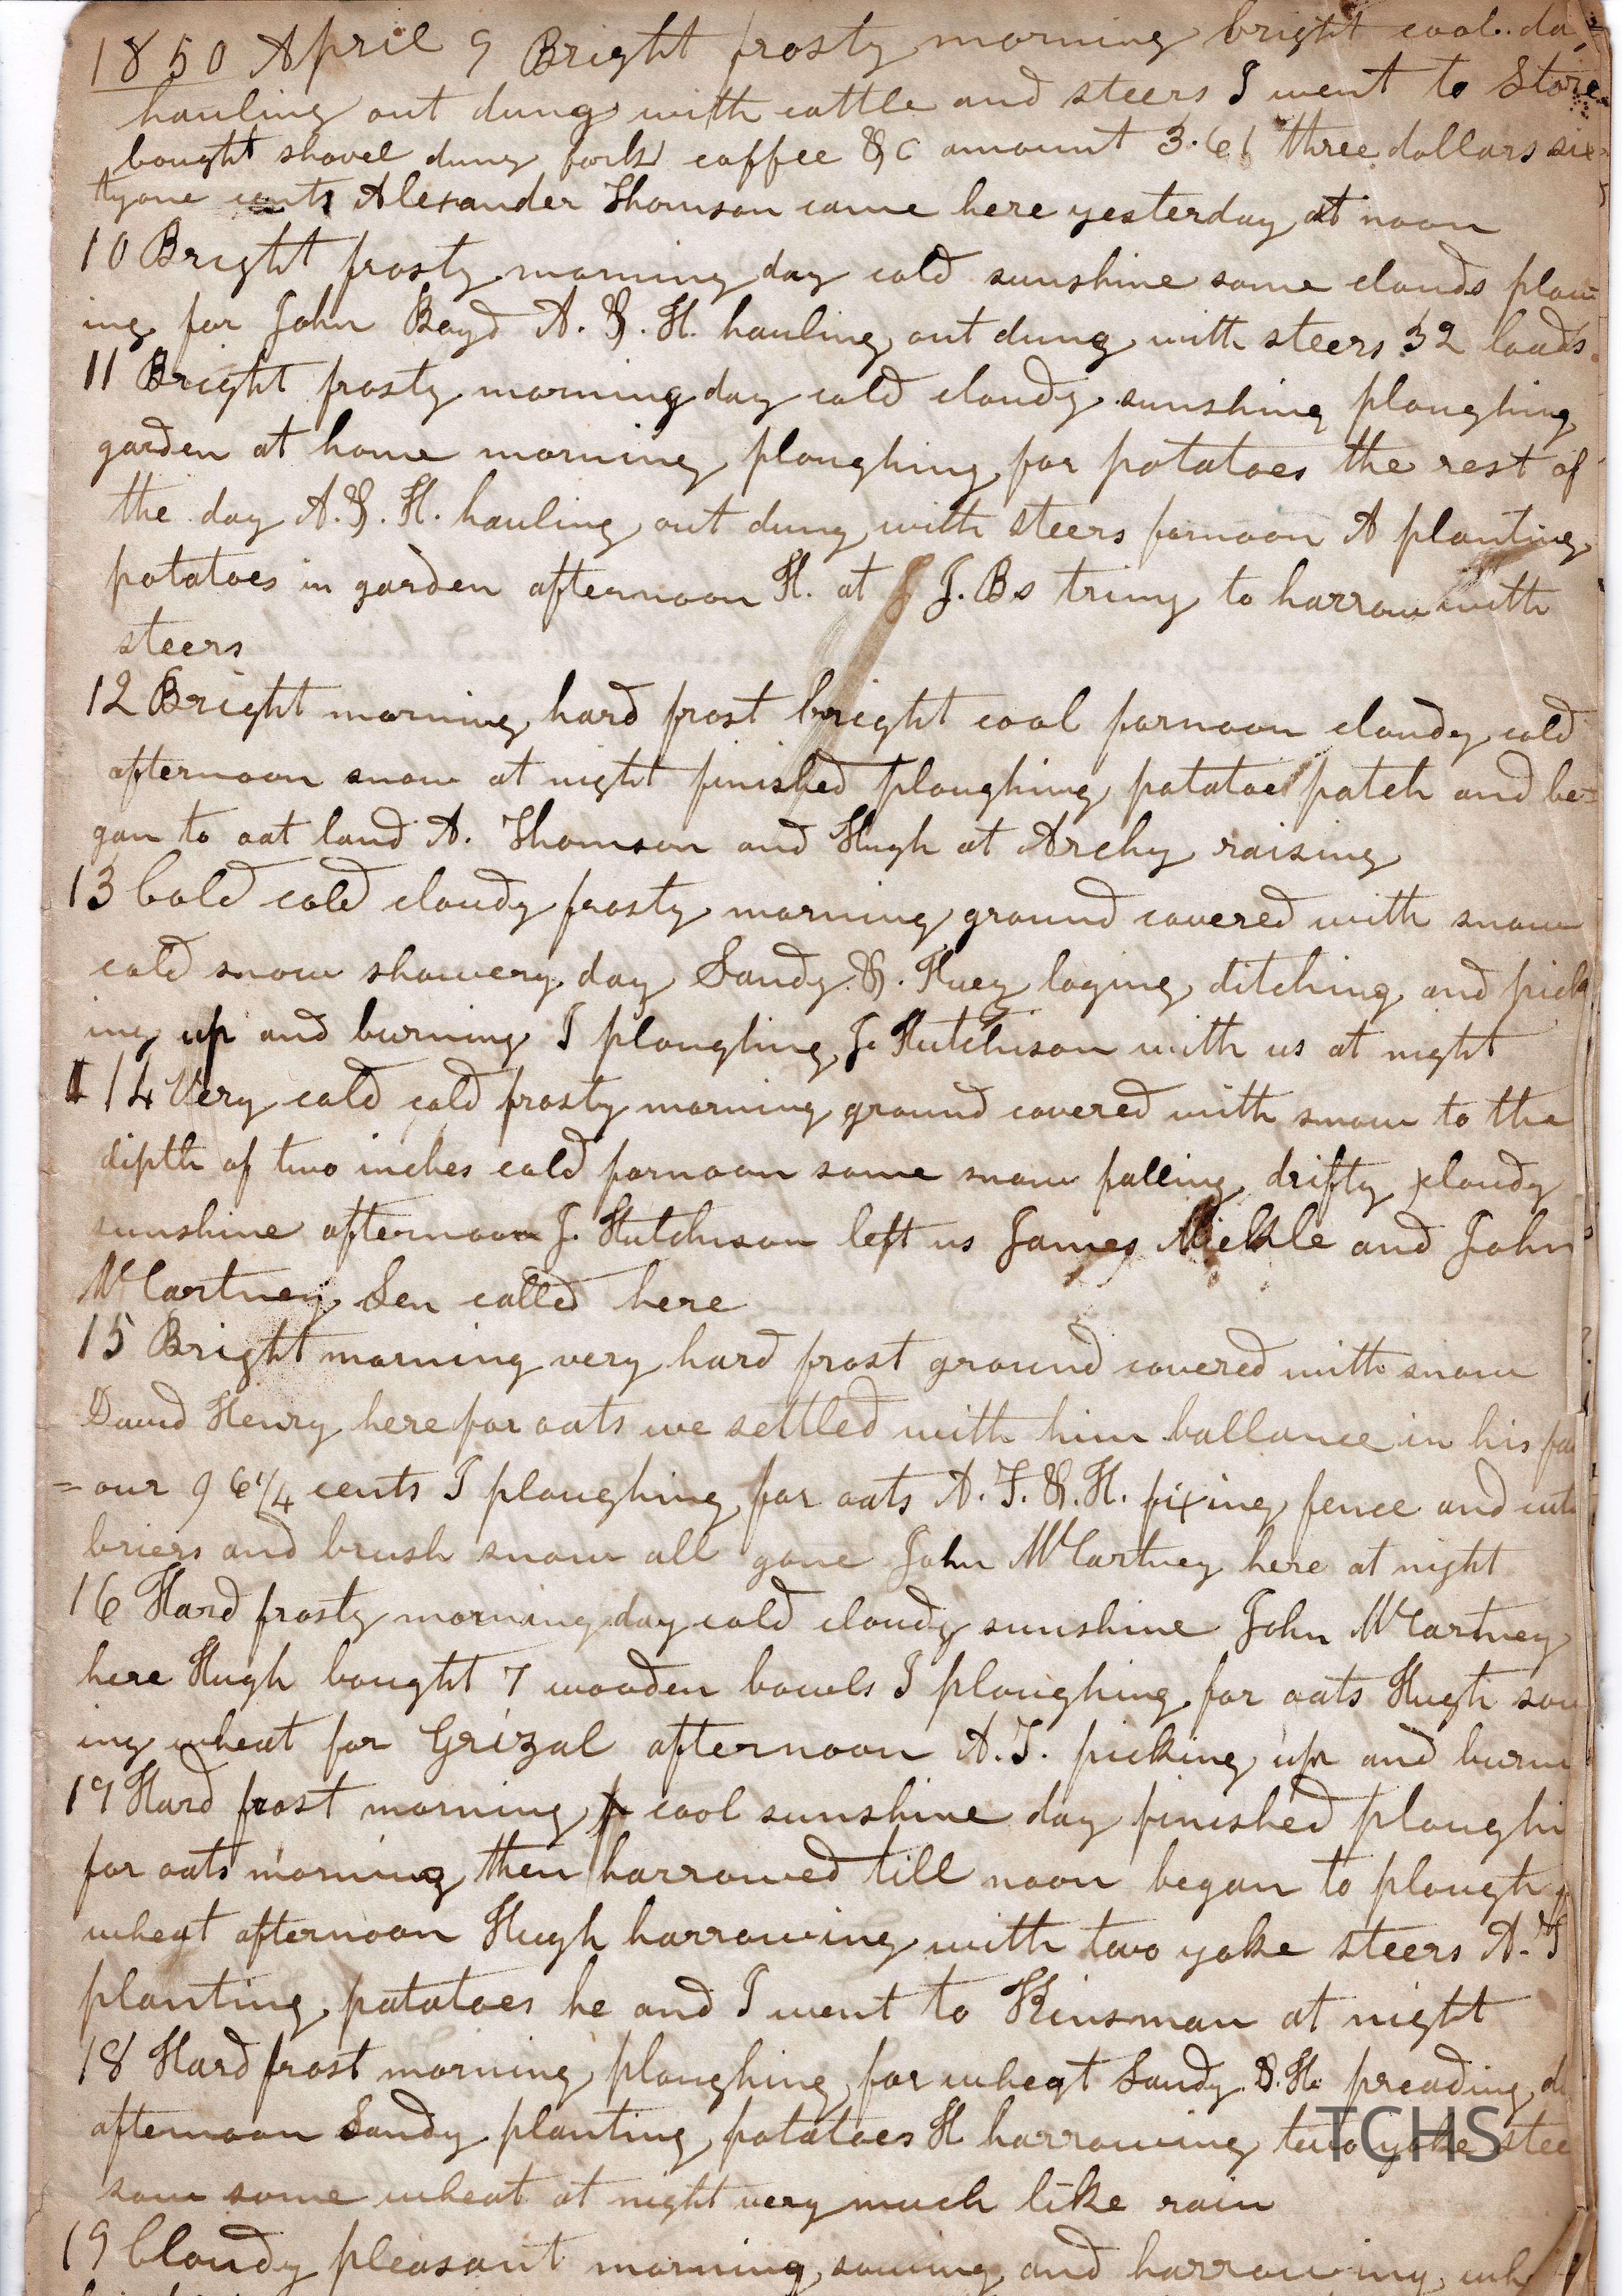 1850 April 9 Bright frosty morning bright cool da
hauling out dung with cattle and steers I went to Store
bought shovel dung fork coffee & c amount 3.61 three dollars six
tyone cents Alexander Thomson came here yesterday at noon
10 Bright frosty morning day cold sunshine some clouds plow
ing for John Boyd A. & . H. hauling out dung with steers 32 loads
11 Bright frosty morning day cold cloudy sunshing ploughing
garden at home morning ploughing for potatoes the rest of
the day A. & . H. hauling out dung with steers fornoon A planting
potatoes in garden afternoon H. at J J. Bs triing to harrow with
steers
12 Bright morning hard frost bright cool fornoon cloudy cold
afternoon snow at night finished ploughing potatoe patch and be=
gan to oat land A. Thomson and Hugh at Archy raising
13 Cold cold cloudy frosty morning ground covered with snow
cold snow showery day Sandy & . Huey loging ditching and pick
ing up and burning I ploughing J. Hutchison with us at night
14 Very cold cold frosty morning ground covered with snow to the
dipth of two inches cold fornoon some snow falling drifty cloudy
sunshine afternoon J. Hutchison left us James Mickle and John
McCartney Sen called here
15 Bright morning very hard frost ground covered with snow
David Henry here for oats we settled with him ballance in his fav
= our 96 1/4 cents I ploughing for oats A. T. & . H. fixing fence and cut
briers and brush snow all gone John McCartney here at night
16 Hard frosty morning day cold cloudy sunshine John McCartney
here Hugh bought 7 wooden bowls I ploughing for oats Hugh sow
ing wheat for Grizal afternoon A. T. picking up and burn
17 Hard frost morning cool sunshine day finished ploughi
for oats morning then harrowed till noon began to plough f
wheat afternoon Hugh harrowing with two yoke steers A. T
planting potatoes he and I went to Kinsman at night
18 Hard frost morning ploughing for wheat Sandy & . H. preading du
afternoon Sandy planting potatoes H harrowing two yoke stee
sow some wheat at night very much like rain
TCHS
19 Cloudy pleasant morning sowing and harrowing wh